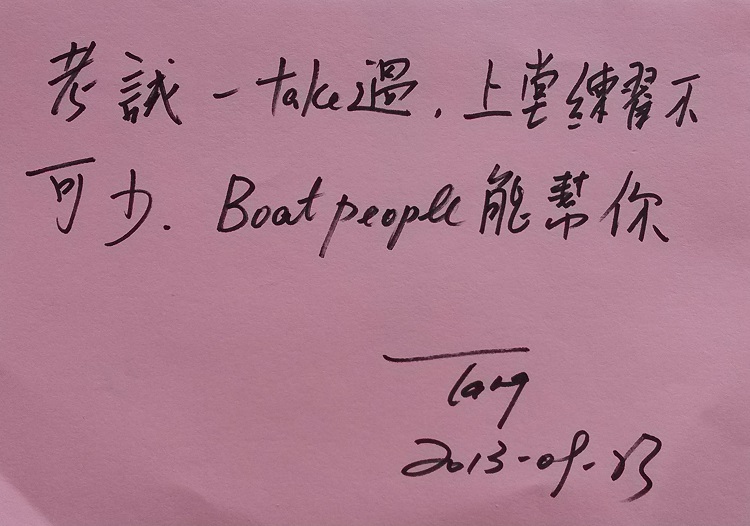 考試一take過，上堂練習不
可少．Boat people能幫你
Tang